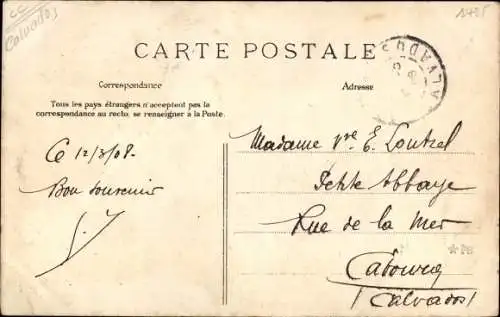 CC
Calvados
CARTE POSTALE
CALVADOS
Correspondance
Adresse
Tous les pays étrangers n'acceptent pas la
correspondance au recto, se renseigner à la Poste.
Ce 12/8/08.
Bon souvenir
Madame Vve E.
Petite Abbaye
Rue de la Mer
Cabourg
(Calvados)